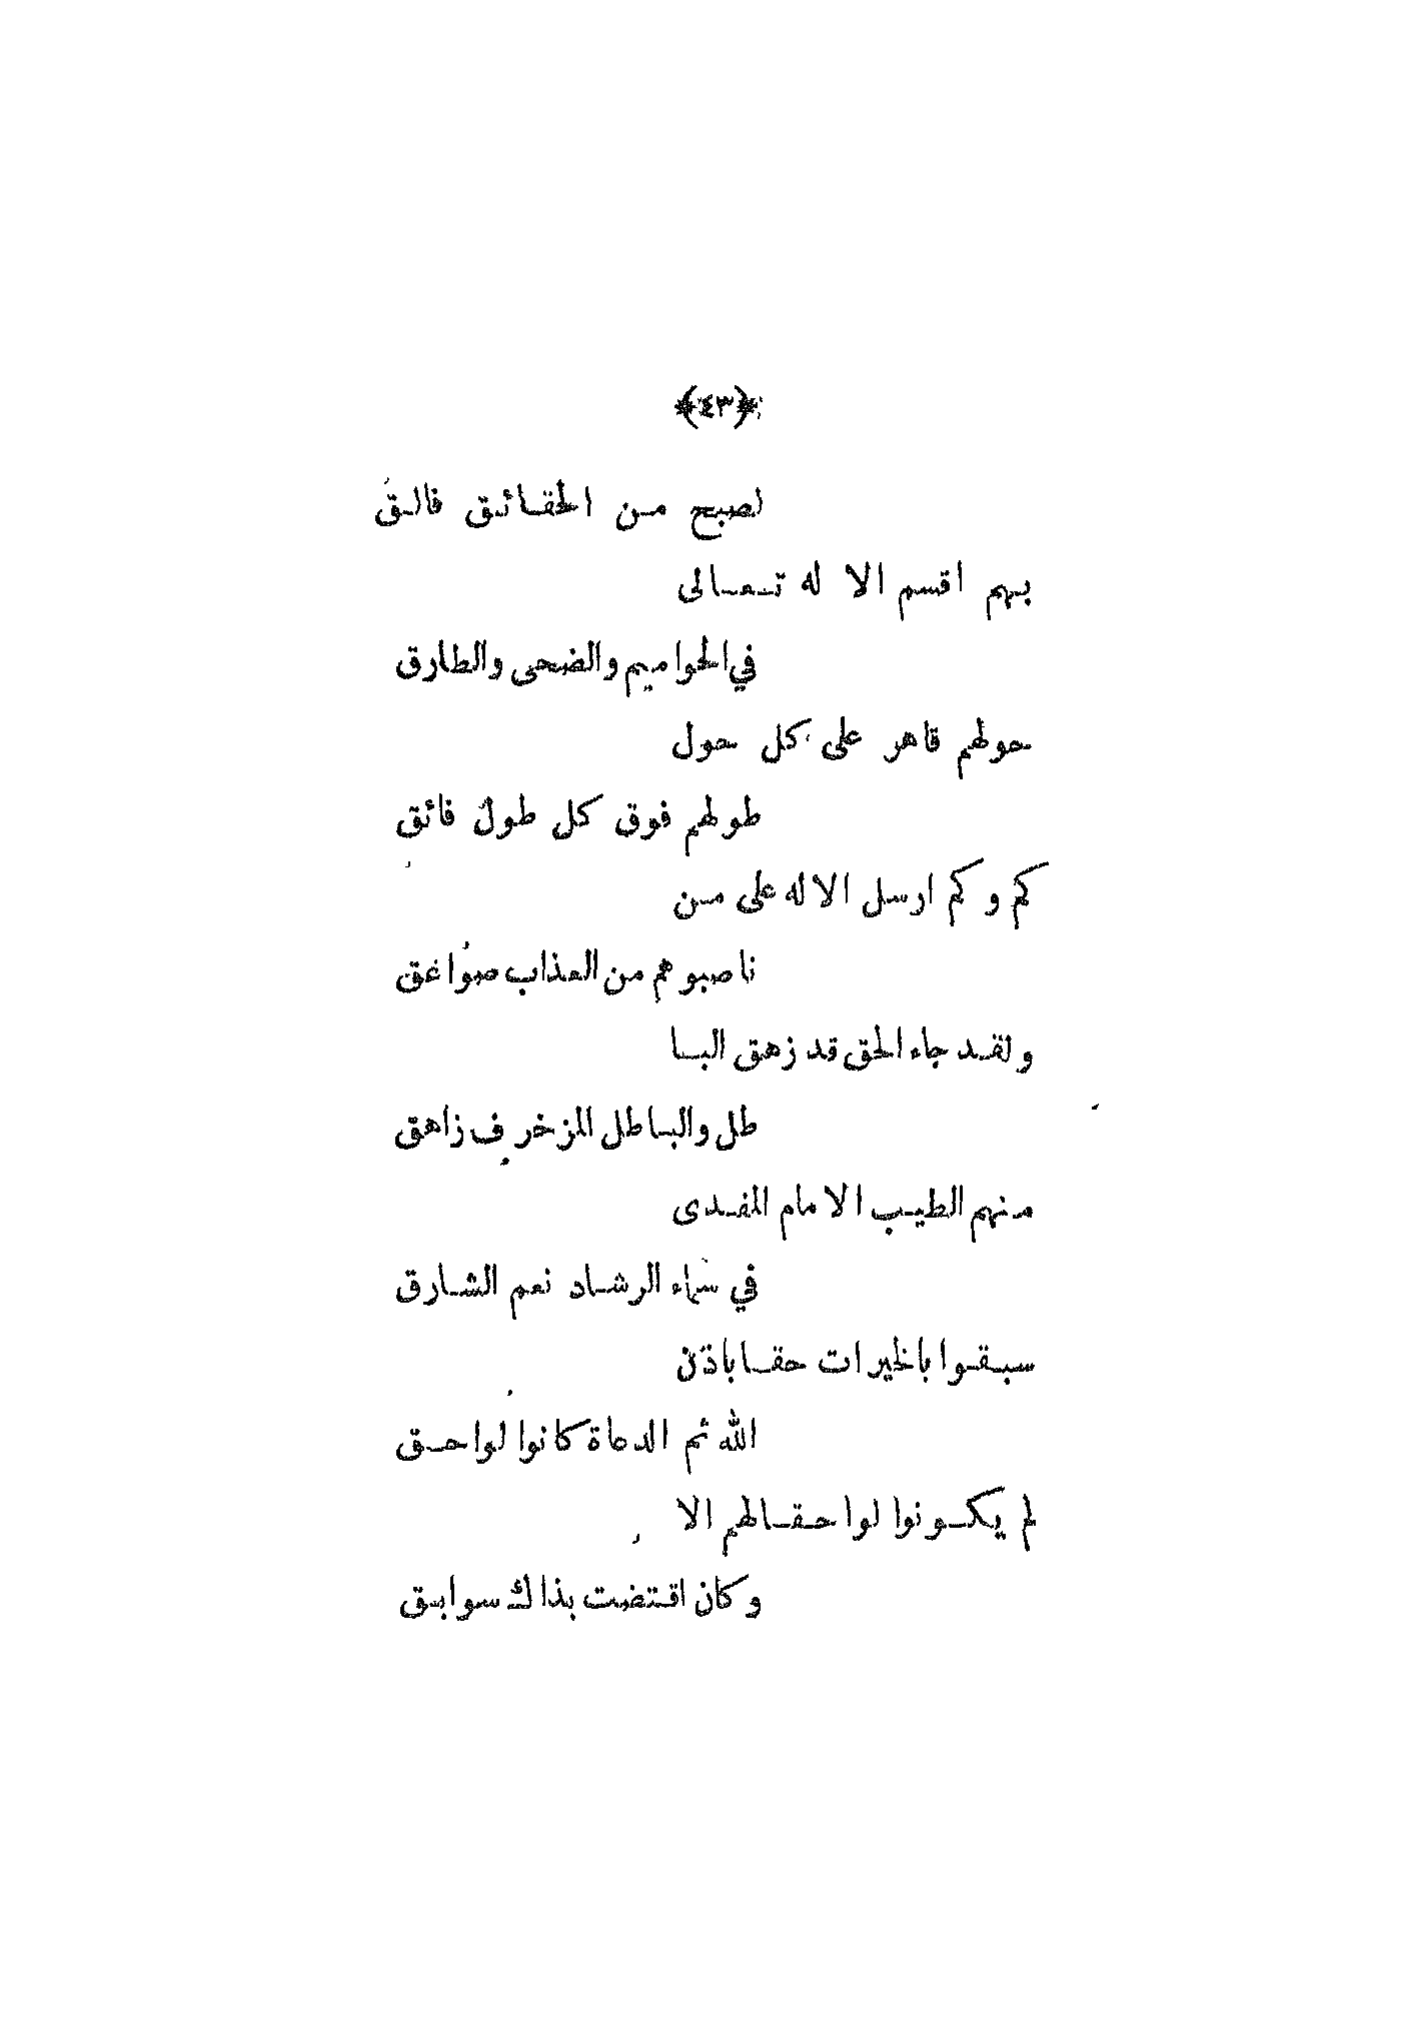 ﴿٤٣﴾
لصبح من الحقائق فالق
بهم اقسم الاله تعالى
في الحواميم والضحى والطارق
حولهم قاهر على كل حول
طولهم فوق كل طول فائق
كم وكم ارسل الاله على من
ناصبوهم من العذاب صواعق
ولقد جاء الحق قد زهق البا
طل والباطل المزخرف زاهق
منهم الطيب الامام المفدى
في سماء الرشاد نعم الشارق
سبقوا بالخيرات حقا باذن
الله ثم الدعاة كانوا لواحق
لم يكونوا لواحقا لهم الا
وكان اقتضت بذاك سوابق